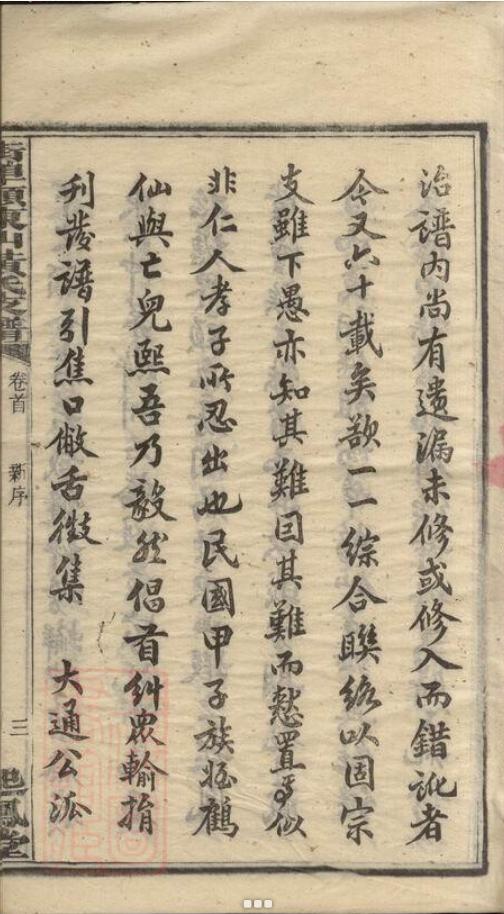 治譜内尚有遺漏未修或修入而錯訛者
今又六十載矣欲一一綜合聯絡以固宗
支雖下愚亦知其難因其難而愁置焉似
非仁人孝子所忍出也民國甲子族姪鶴
仙與亡兒熙吾乃毅然倡首糾眾輸捐
刋發譜引焦口敝舌徵集 大通公派
東山黃氏支譜
卷首 新序
三
鳳堂